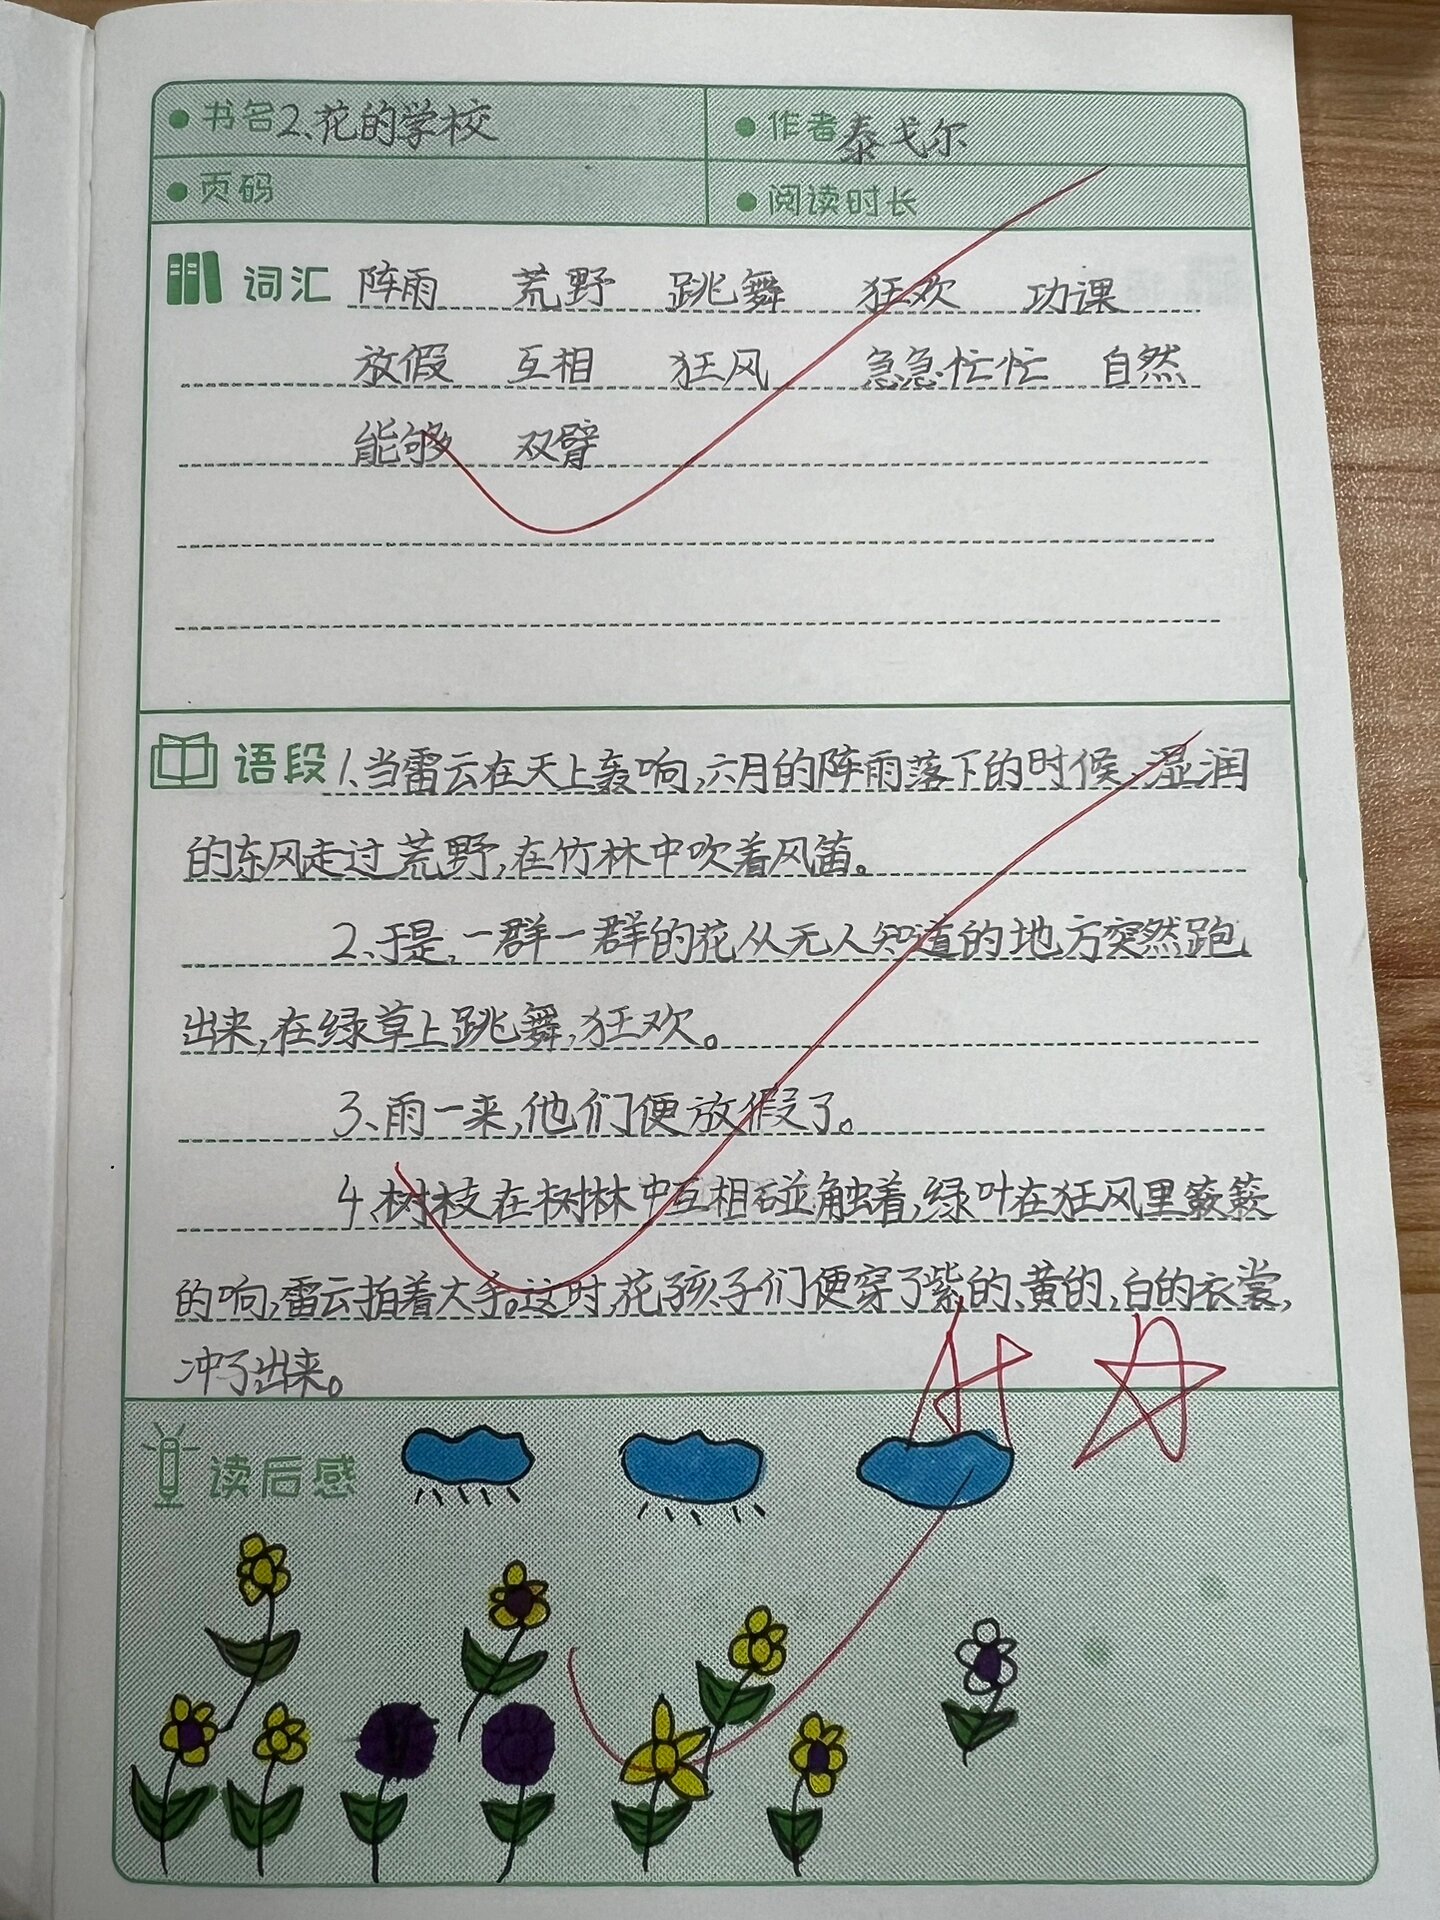 书名 2、花的学校 作者 泰戈尔
页码 阅读时长
词汇 阵雨 荒野 跳舞 狂欢 功课
放假 互相 狂风 急急忙忙 自然
能够 双臂
语段 1、当雷云在天上轰响,六月的阵雨落下的时候、湿润
的东风走过荒野,在竹林中吹着风笛。
2、于是,一群一群的花从无人知道的地方突然跑
出来,在绿草上跳舞,狂欢。
3、雨一来,他们便放假了。
4、树枝在树林中互相碰触着,绿叶在狂风里簌簌
的响,雷云拍着大手。这时,花孩子们便穿了紫的、黄的,白的衣裳,
冲了出来。
读后感